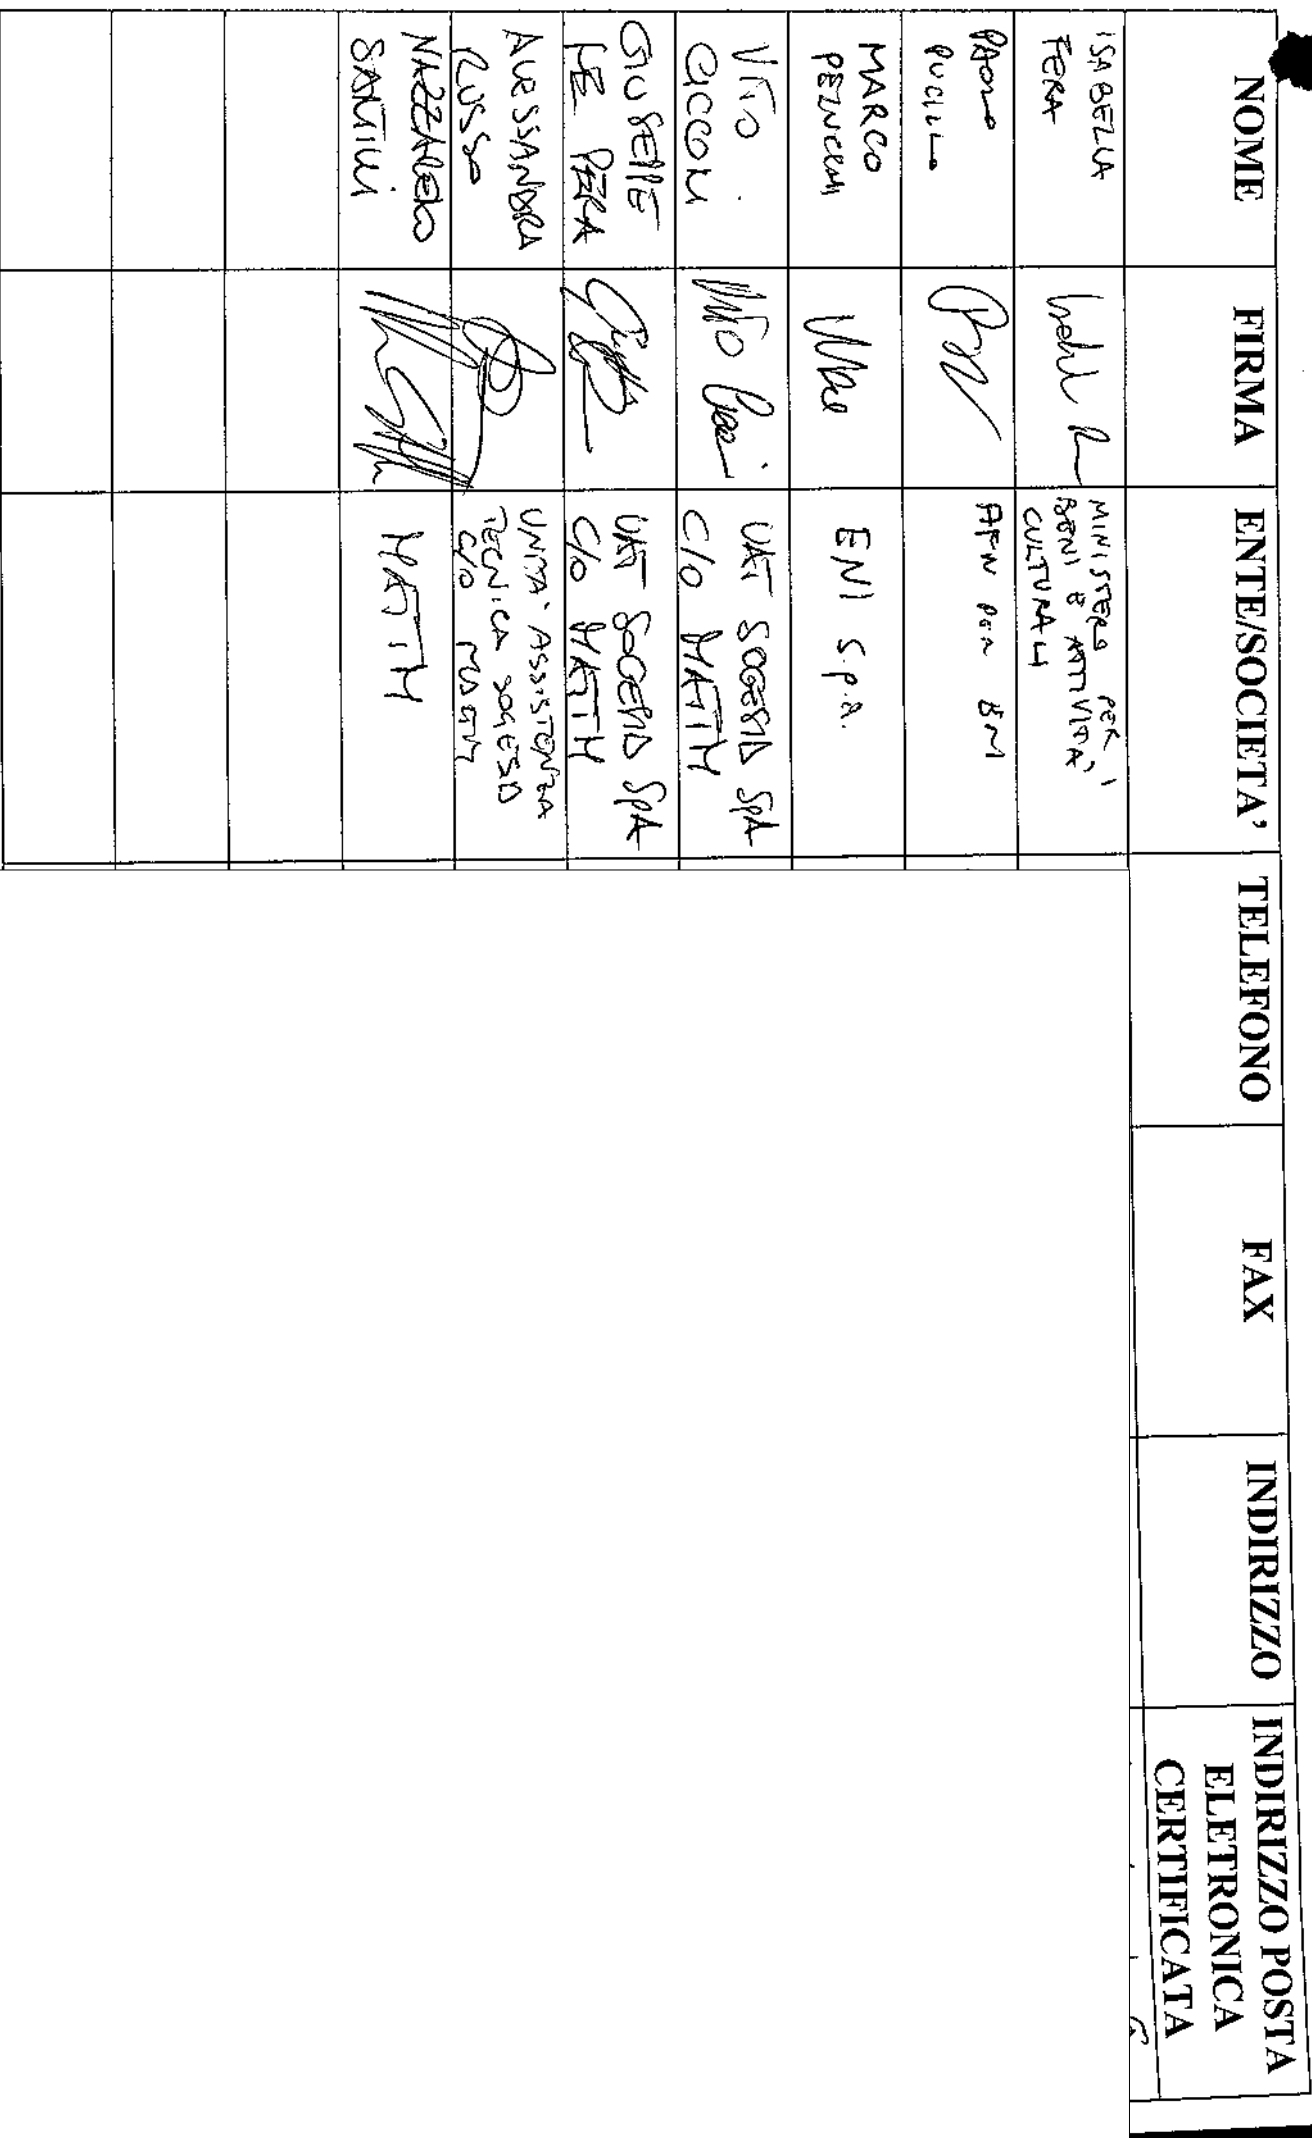 NOME FIRMA ENTE/SOCIETA' TELEFONO FAX INDIRIZZO INDIRIZZO POSTA
ELETRONICA
CERTIFICATA
ISABELLA
FERA
MINISTERO PER I
BENI E ATTIVITA'
CULTURALI
PAOLO
PUCILLO
MARCO
ENI S.p.A.
VITO
CICCONI
UAT SOGESID SpA
C/O MATTM
GIUSEPPE
LE PERA
UAT SOGESID SpA
C/O MATTM
ALESSANDRA
RUSSO
UNITA' ASSISTENZA
TECNICA SOGESID
C/O MATTM
NAZZARENO
SANTINI
MATTM